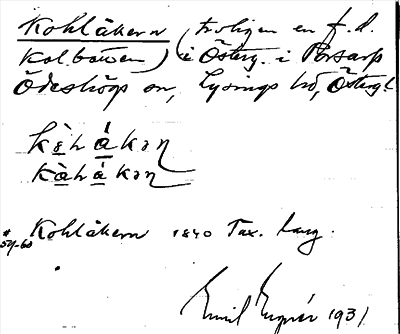 Kohlåkern (troligen en f.d.
kolbotten) i Österg. i Porsarp
Ödeshögs sn, Lysings hd, Östergl
kòhåkəɳ
kàhåkəɳ
Kohlåkern 1840 Tax. läng.
59-60
Emil 1931